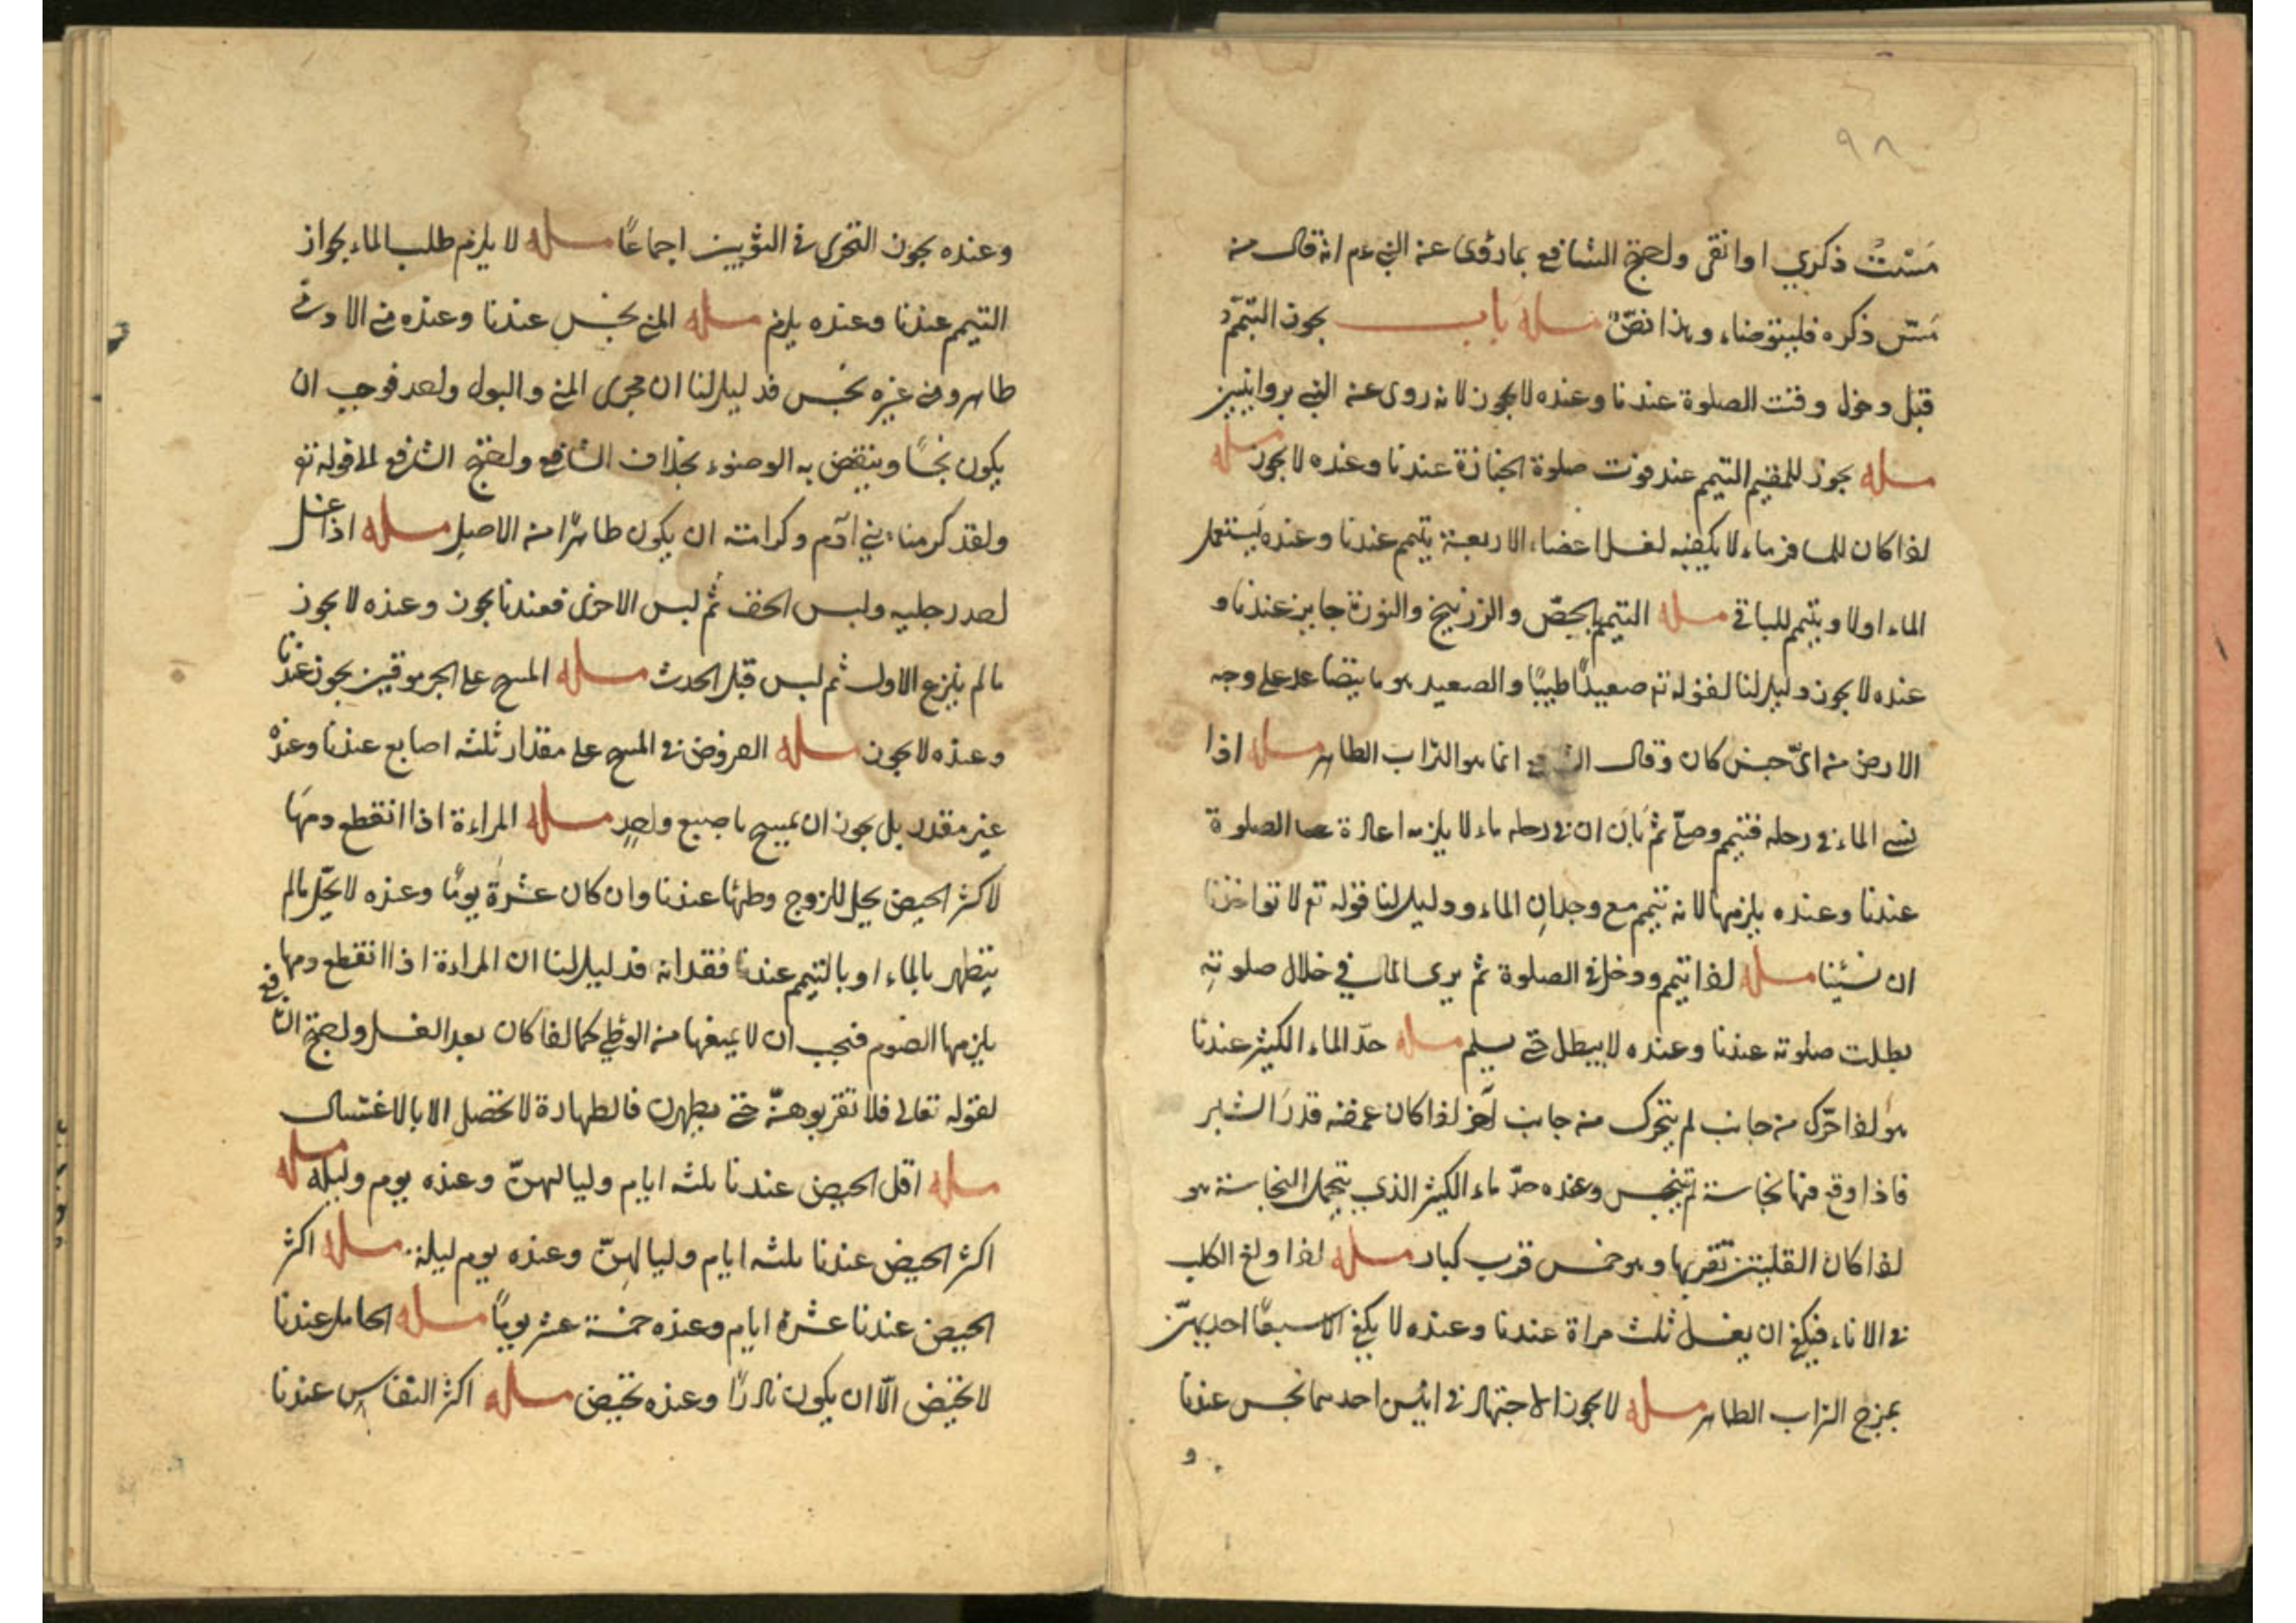 ٩٨
مَسَسْتُ ذكري او انفى واحتج الشافعي بما روى عنه النبي عم انه قال من
مَسّ ذكره فليتوضاء وهذا نصّ مسله باب يجوز التيمّم
قبل دخول وقت الصلوة عندنا وعنده لا يجوز لانه روى عنه النبي بروايتين
مسله يجوز للمقيم التيمم عند فوت صلوة الجنازة عندنا وعنده لا يجوز مسله
اذا كان للمسافر ماء لا يكفيه لغسل اعضاء الاربعة يتيمم عندنا وعنده يستعمل
الماء اولا ويتيمم للباقي مسله التيمم بالجصّ والزرنيخ والنورة جايز عندنا و
عنده لا يجوز دليل لنا لقوله تع صعيدًا طيبًا والصعيد هو ما يتصاعد على وجه
الارض من اىّ جنس كان وقال الشافعي انما هو التراب الطاهر مسله اذا
نسى الماء في رحله فتيمم وصلّى ثم بان ان في رحله ماء لا يلزمه اعادة الصلوة
عندنا وعنده يلزمها لانه تيمم مع وجدانِ الماء ودليل لنا قوله تع لا تواخذنا
ان نسينا مسله اذا تيمم ودخل في الصلوة ثم يرى الماء في خلال صلوته
بطلت صلوته عندنا وعنده لا يبطل حتى يسلم مسله حدّ الماء الكثير عندنا
هو اذا حرّك من جانب لم يتحرك من جانب آخر اذا كان عمقه قدرَ الشبر
فاذا وقع فيها نجاسة لم يتنجس وعنده حدّ ماء الكثير الذي يتحمل النجاسة هو
اذا كان القلتين تقريبا وهو خمس قرب كبار مسله اذا ولغ الكلب
في الاناء فيكفى ان يغسل ثلث مراة عندنا وعنده لا يكفى الا سبعًا احديهنّ
بمزج التراب الطاهر مسله لا يجوز الاجتهاد في انيس احدهما نجس عندنا
و
وعنده يجوز التحرى في الثوبين اجماعًا مسله لا يلزم طلب الماء بجواز
التيمم عندنا وعنده يلزم مسله المنى نجس عندنا وعنده من الادمى
طاهر ومن غيره نجس فدليل لنا ان مجرى المنى والبول واحد فوجب ان
يكون نجسًا وينتقض به الوضوء بخلاف الشافعي واحتج الشافعي لما قوله تع
ولقد كرمنا بني آدم وكرامته ان يكون طاهرًا من الاصل مسله اذا غسل
احد رجليه ولبس الخف ثم لبس الاخرى فعندنا يجوز وعنده لا يجوز
ما لم ينزع الاول ثم لبس قبل الحدث مسله المسح على الجرموقين يجوز عندنا
وعنده لا يجوز مسله المفروض في المسح على مقدار ثلثه اصابع عندنا وعنده
غير مقدر بل يجوز ان يمسح باصبع واحدٍ مسله المراءة اذا انقطع دمها
لاكثر الحيض يحل للزوج وطئها عندنا وان كان عشرة يومًا وعنده لا يحلّ ما لم
يتطهر بالماء او بالتيمم عند فقدانه فدليل لنا ان المراءة اذا انقطع دمها
يلزمها الصوم فيجب ان لا يمنعها من الوطى كما اذا كان بعد الغسل واحتج الشافعي
لقوله تعالى فلا تقربوهنّ حتى يطهرن فالطهارة لا تحصل الا بالاغتسال
مسله اقل الحيض عندنا ثلثه ايام ولياليهنّ وعنده يوم وليله مسله
اكثر الحيض عندنا ثلثه ايام ولياليهنّ وعنده يوم ليلة مسله اكثر
الحيض عندنا عشرة ايام وعنده خمسة عشر يومًا مسله الحامل عندنا
لا تحيض الّا ان يكون نادرًا وعنده تحيض مسله اكثر النفاس عندنا